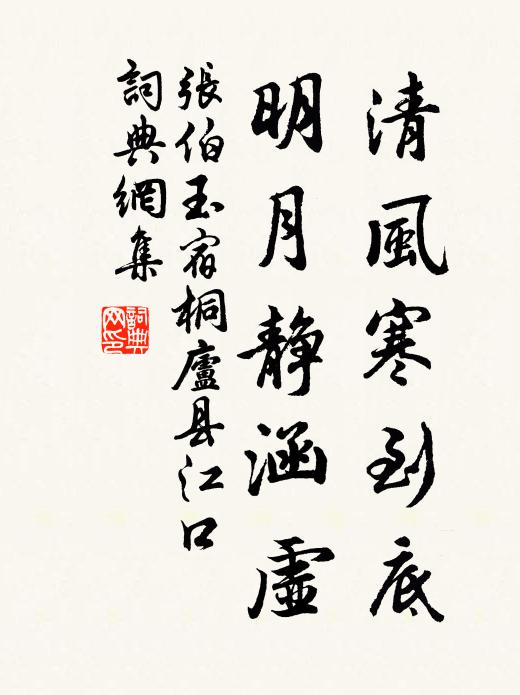 清風寒到底
明月静涵虛
張伯玉宿桐廬县江口
詞典網集
詞典网印